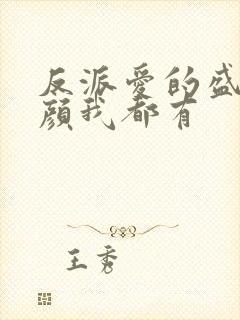 反派爱的盛
颜我都有
王秀